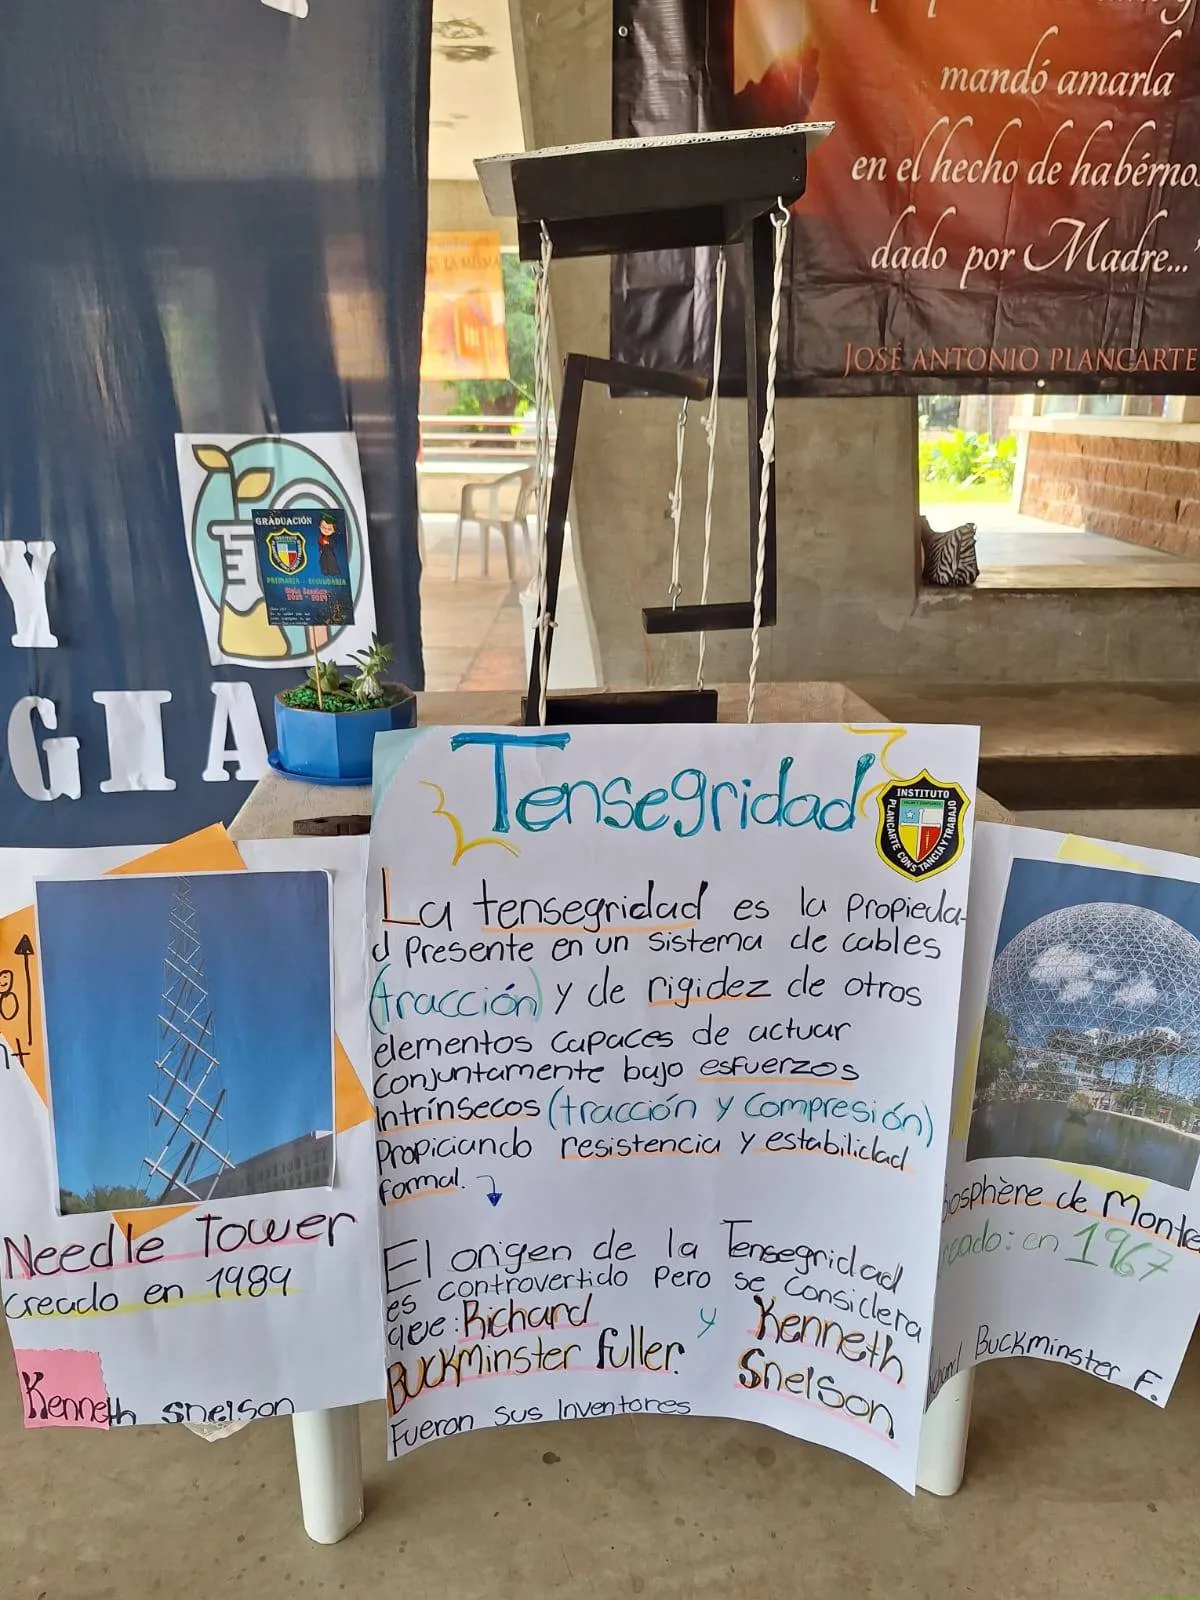 mandó amarla
en el hecho de habérnos
dado por Madre..."
JOSÉ ANTONIO PLANCARTE
GRADUACIÓN
PRIMARIA - SECUNDARIA
Y
GIA
Tensegridad
INSTITUTO
PLANCARTE CONSTANCIA Y TRABAJO
La tensegridad es la propieda-
d presente en un sistema de cables
(tracción) y de rigidez de otros
elementos capaces de actuar
conjuntamente bajo esfuerzos
intrínsecos (tracción y compresión)
propiciando resistencia y estabilidad
formal.
El origen de la Tensegridad
es controvertido pero se considera
que: Richard
Buckminster fuller. y Kenneth
Snelson
Fueron sus inventores
Needle Tower
creado en 1989
Kenneth Snelson
Biosphère de Montre
creado: en 1967
Richard Buckminster F.